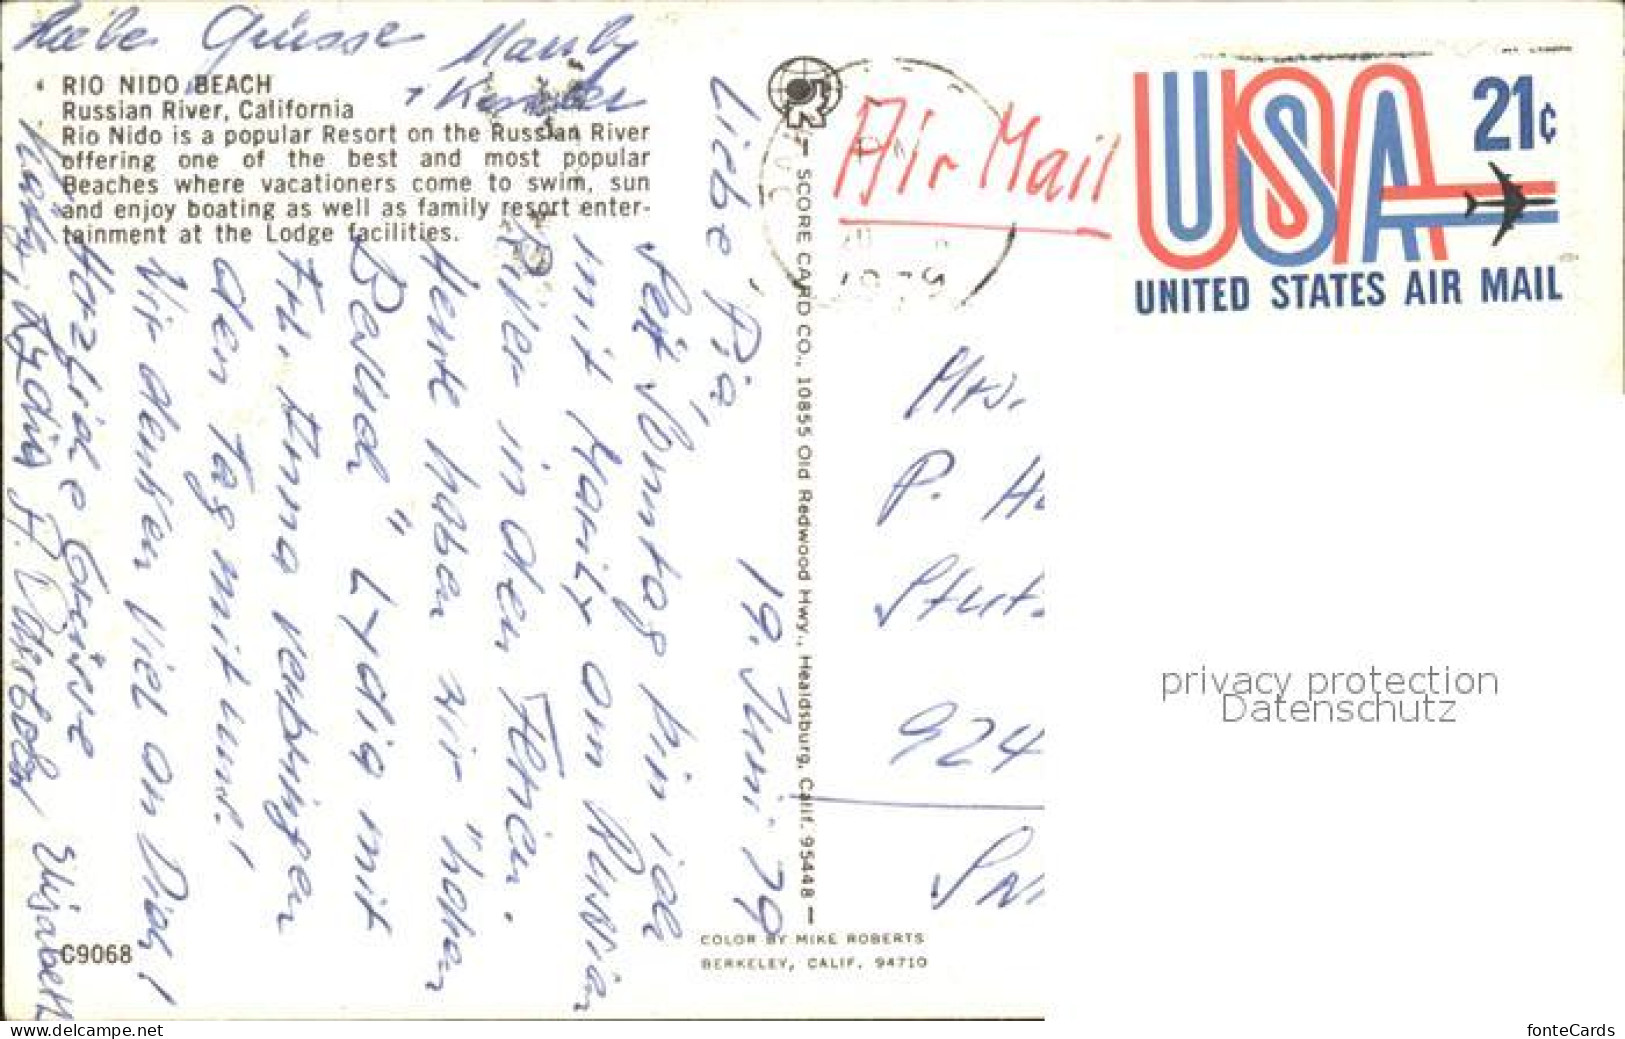 Liebe Grüsse
RIO NIDO BEACH
Russian River, California
Rio Nido is a popular Resort on the Russian River
offering one of the best and most popular
Beaches where vacationers come to swim, sun
and enjoy boating as well as family resort enter-
tainment at the Lodge facilities.
19. Juni 79
Liebe Pia,
Seit Sonntag bin ich
mit Marily am Russian
River in den Ferien.
Heute haben wir "hohen
Besuch" Lydia mit
Frl. Anna verbringen
den Tag mit uns!
Wir denken viel an Dich!
Herzliche Grüsse
Elisabeth
Lydia
C9068
SCORE CARD CO., 10855 Old Redwood Hwy., Healdsburg, Calif. 95448
COLOR BY MIKE ROBERTS
BERKELEY, CALIF. 94710
Air Mail
USA 21c
UNITED STATES AIR MAIL
Mrs.
P. H
Stut
924
privacy protection
Datenschutz
www.delcampe.net
fonteCards